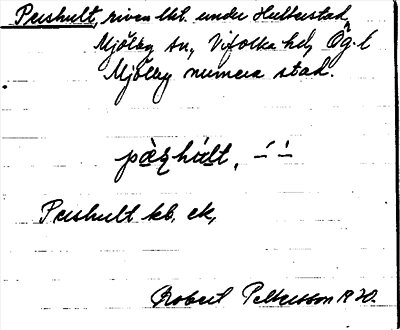 Pershult, riven lht. under Hulterstad
Mjölby sn, Vifolka hd, Ög. l
Mjölby numera stad.
pæ̀rhúlt,
Pershult kb. ek,
Robert Pettersson 1930.